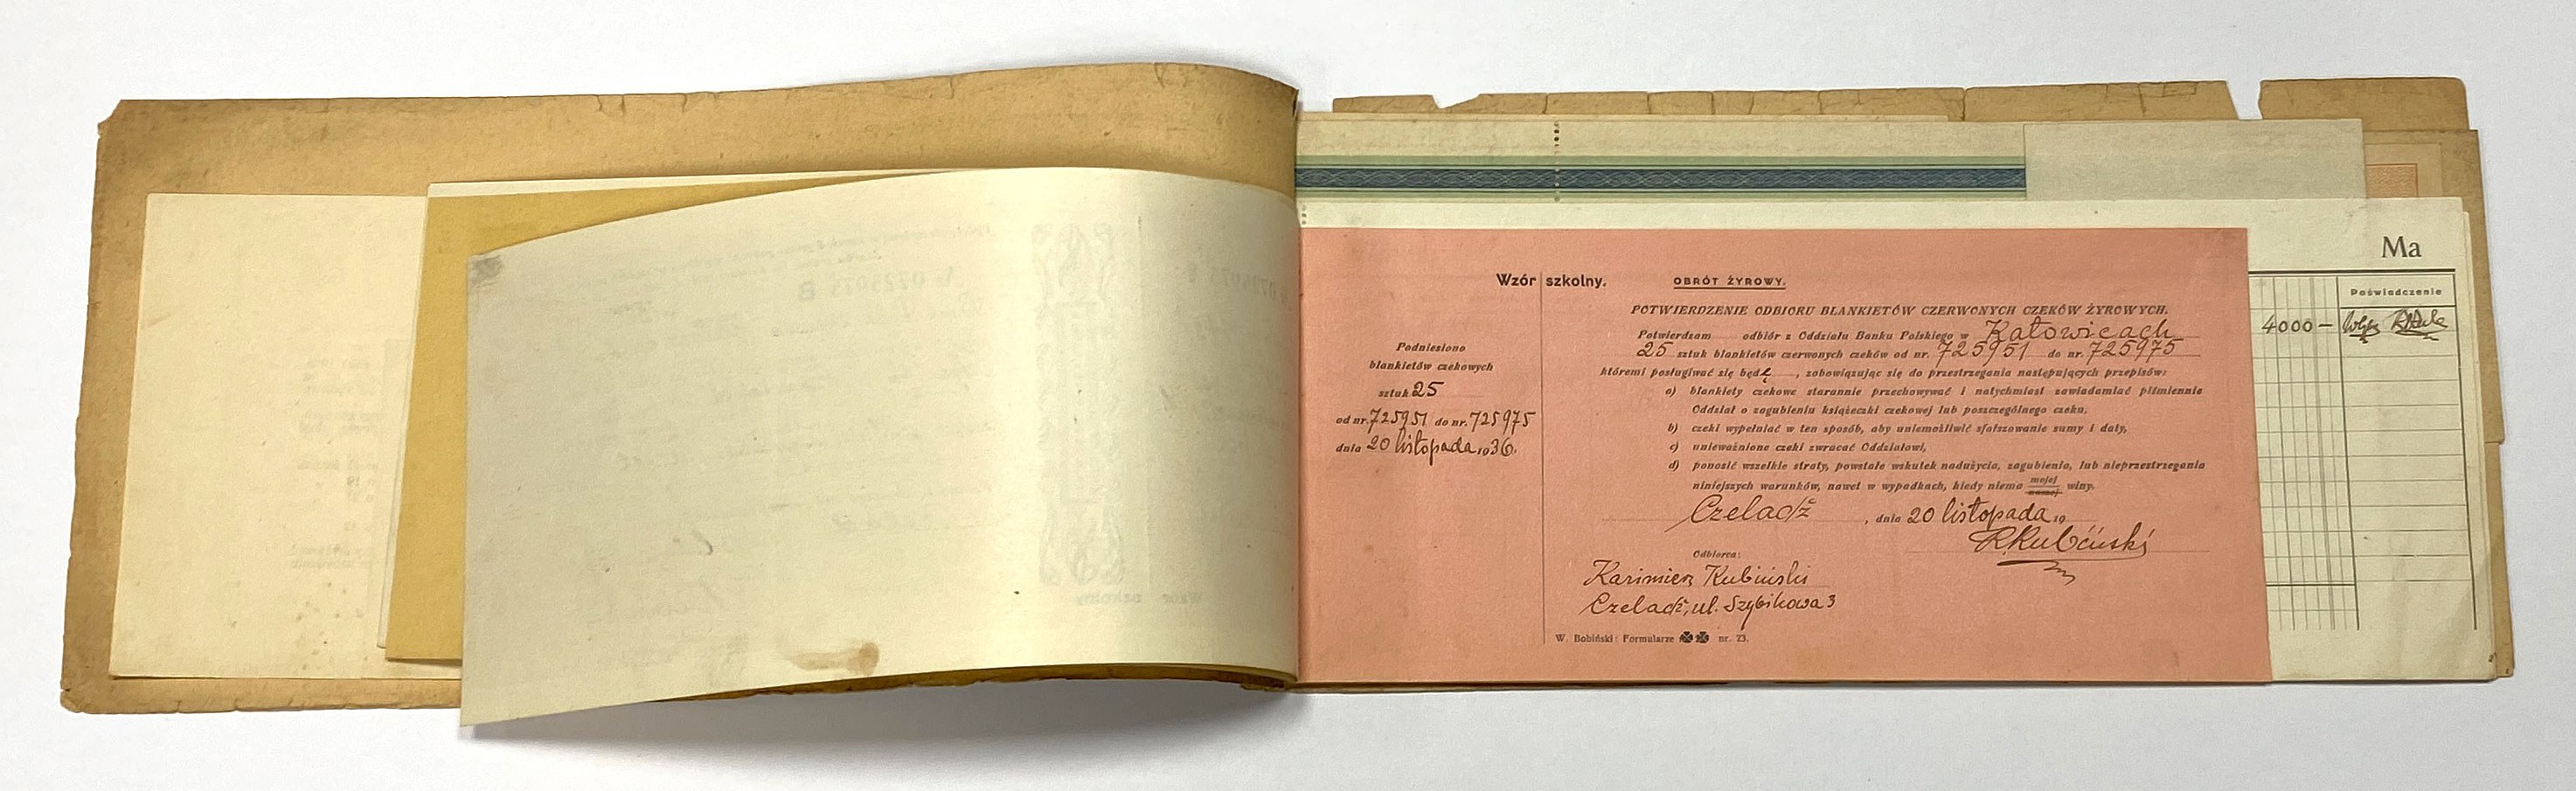 Ma
Poświadczenie
4000 —
Wzór szkolny.
OBRÓT ŻYROWY.
POTWIERDZENIE ODBIORU BLANKIETÓW CZERWONYCH CZEKÓW ŻYROWYCH.
Potwierdzam odbiór z Oddziału Banku Polskiego w Katowicach
25 sztuk blankietów czerwonych czeków od nr. 725951 do nr. 725975
któremi posługiwać się będę, zobowiązując się do przestrzegania następujących przepisów:
a) blankiety czekowe starannie przechowywać i natychmiast zawiadamiać piśmiennie
Oddział o zagubieniu książeczki czekowej lub poszczególnego czeku,
b) czeki wypełniać w ten sposób, aby uniemożliwić sfałszowanie sumy i daty,
c) unieważnione czeki zwracać Oddziałowi,
d) ponosić wszelkie straty, powstałe wskutek nadużycia, zagubienia, lub nieprzestrzegania
niniejszych warunków, nawet w wypadkach, kiedy niema mojej naszej winy.
Czeladź, dnia 20 listopada 19
RKubiński
Odbiorca:
Kazimierz Kubiński
Czeladź, ul. Szybikowa 3
W. Bobiński: Formularze nr. 23.
Podniesiono
blankietów czekowych
sztuk 25
od nr. 725951 do nr. 725975
dnia 20 listopada 1936.